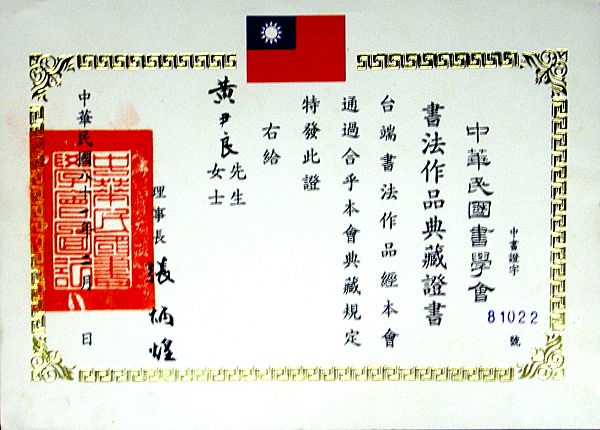 中書證字 81022 號
中華民國書學會
書法作品典藏證書
台端書法作品經本會
通過合乎本會典藏規定
特發此證
右給
黃尹良 先生 女士
理事長 張炳煌
中華民國八十一年 月 日
中華民國書
學會圖記